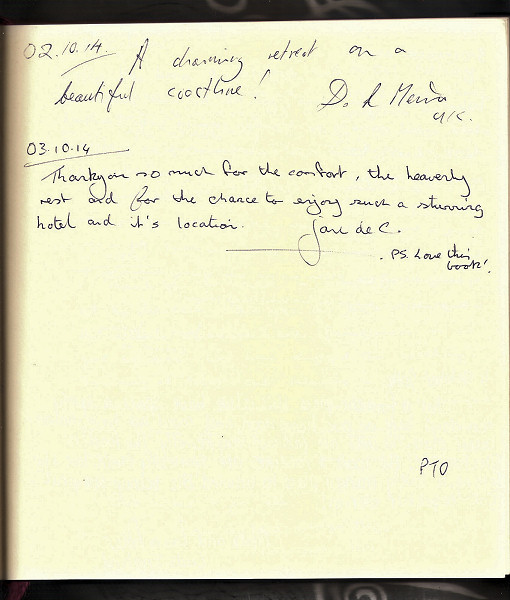 02.10.14. A charming retreat on a
beautiful coastline! D. R
U.K.
03.10.14
Thankyou so much for the comfort, the heavenly
rest and for the chance to enjoy such a stunning
hotel and it's location.
Jane de C.
PS. Love this
book!
PTO